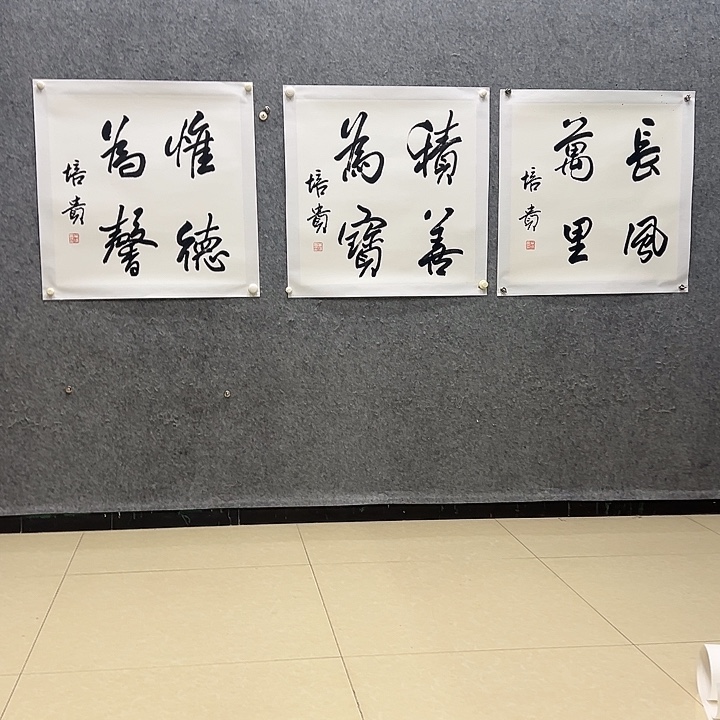 長風
萬里
培貴
積善
為寶
培貴
惟德
為馨
培貴